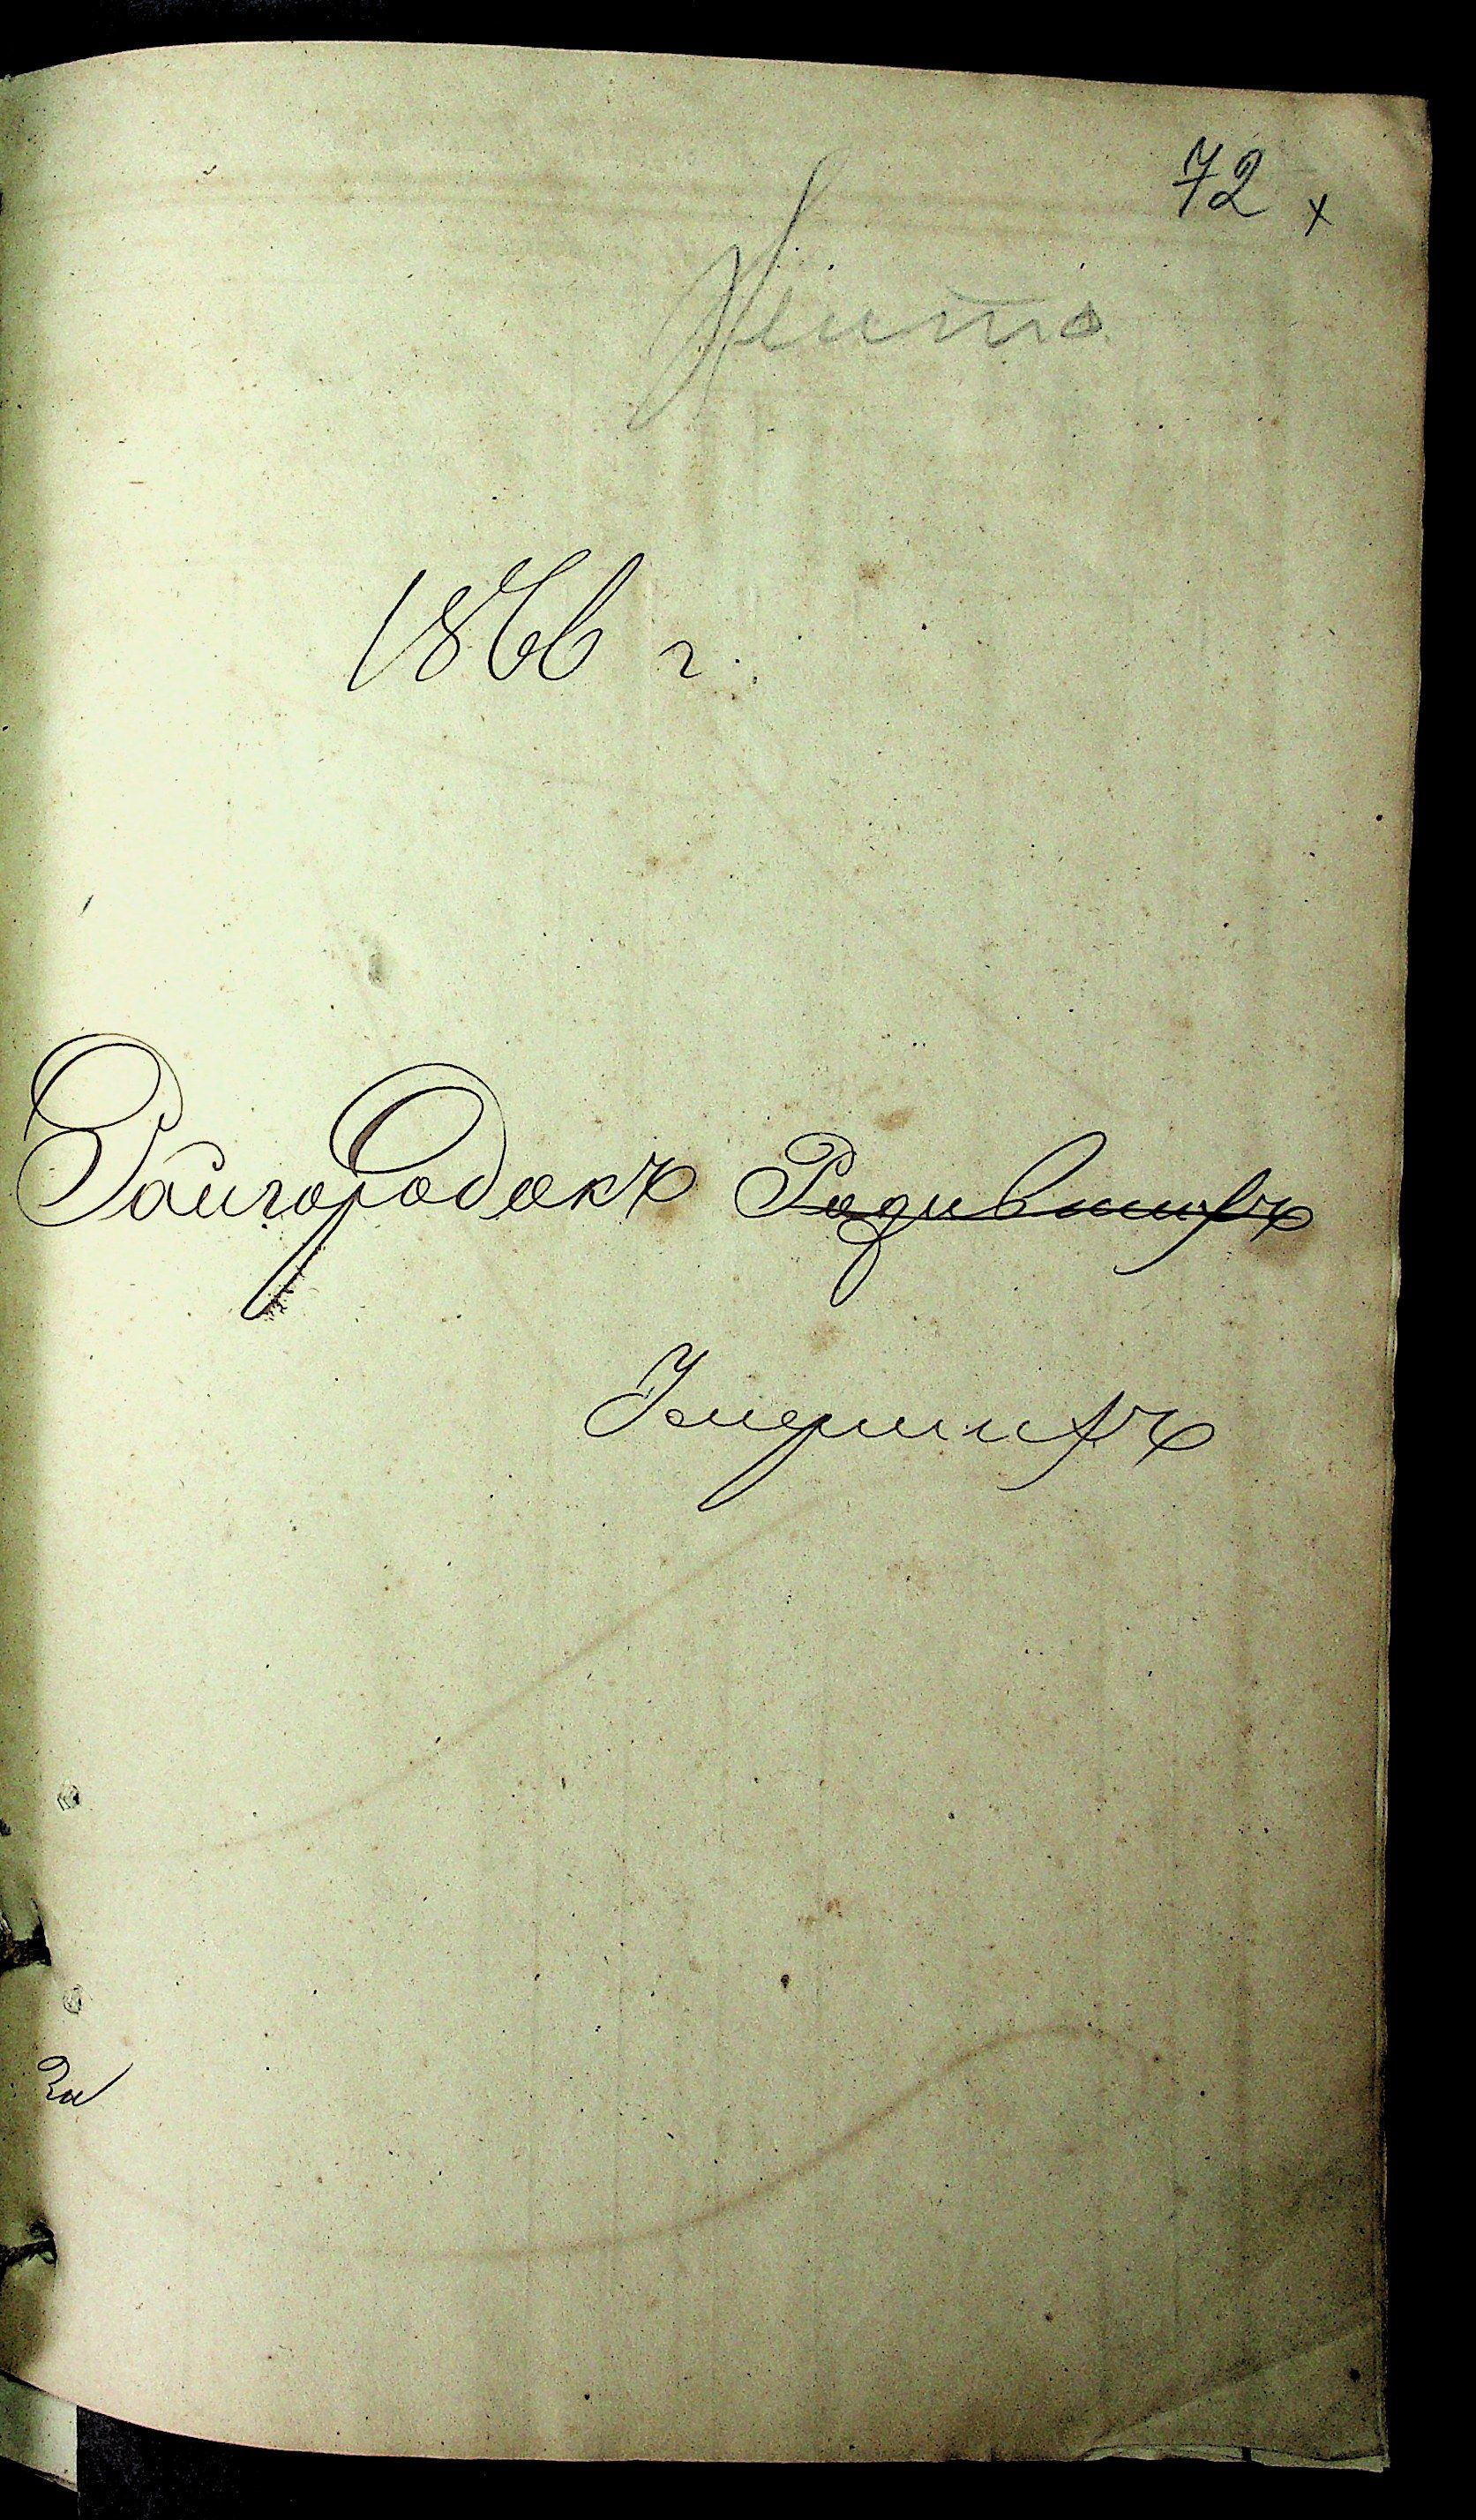 72 x
1866 г.
Райгородокъ ~~Родившихъ~~
Умершихъ